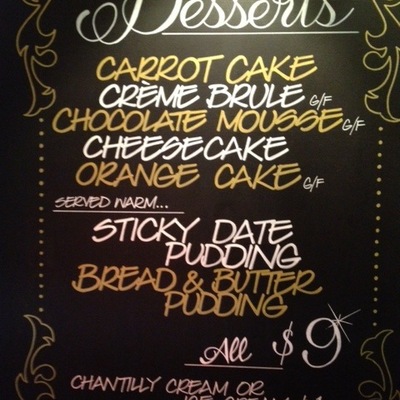 Desserts
CARROT CAKE
CRÈME BRULE G/F
CHOCOLATE MOUSSE G/F
CHEESECAKE
ORANGE CAKE G/F
SERVED WARM...
STICKY DATE
PUDDING
BREAD & BUTTER
PUDDING
All $9
CHANTILLY CREAM OR
ICE CREAM